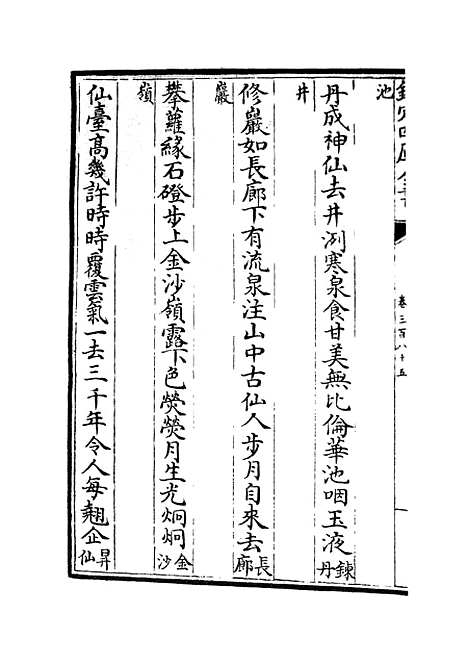 欽定四庫全書
卷三百八十五
池
丹成神仙去井冽寒泉食甘美無比倫華池咽玉液鍊丹
井
修巖如長廊下有流泉注山中古仙人步月自來去長廊
巖
攀蘿緣石磴步上金沙嶺露下色熒熒月生光炯炯金沙
嶺
仙臺高幾許時時覆雲氣一去三千年令人每翹企昇仙